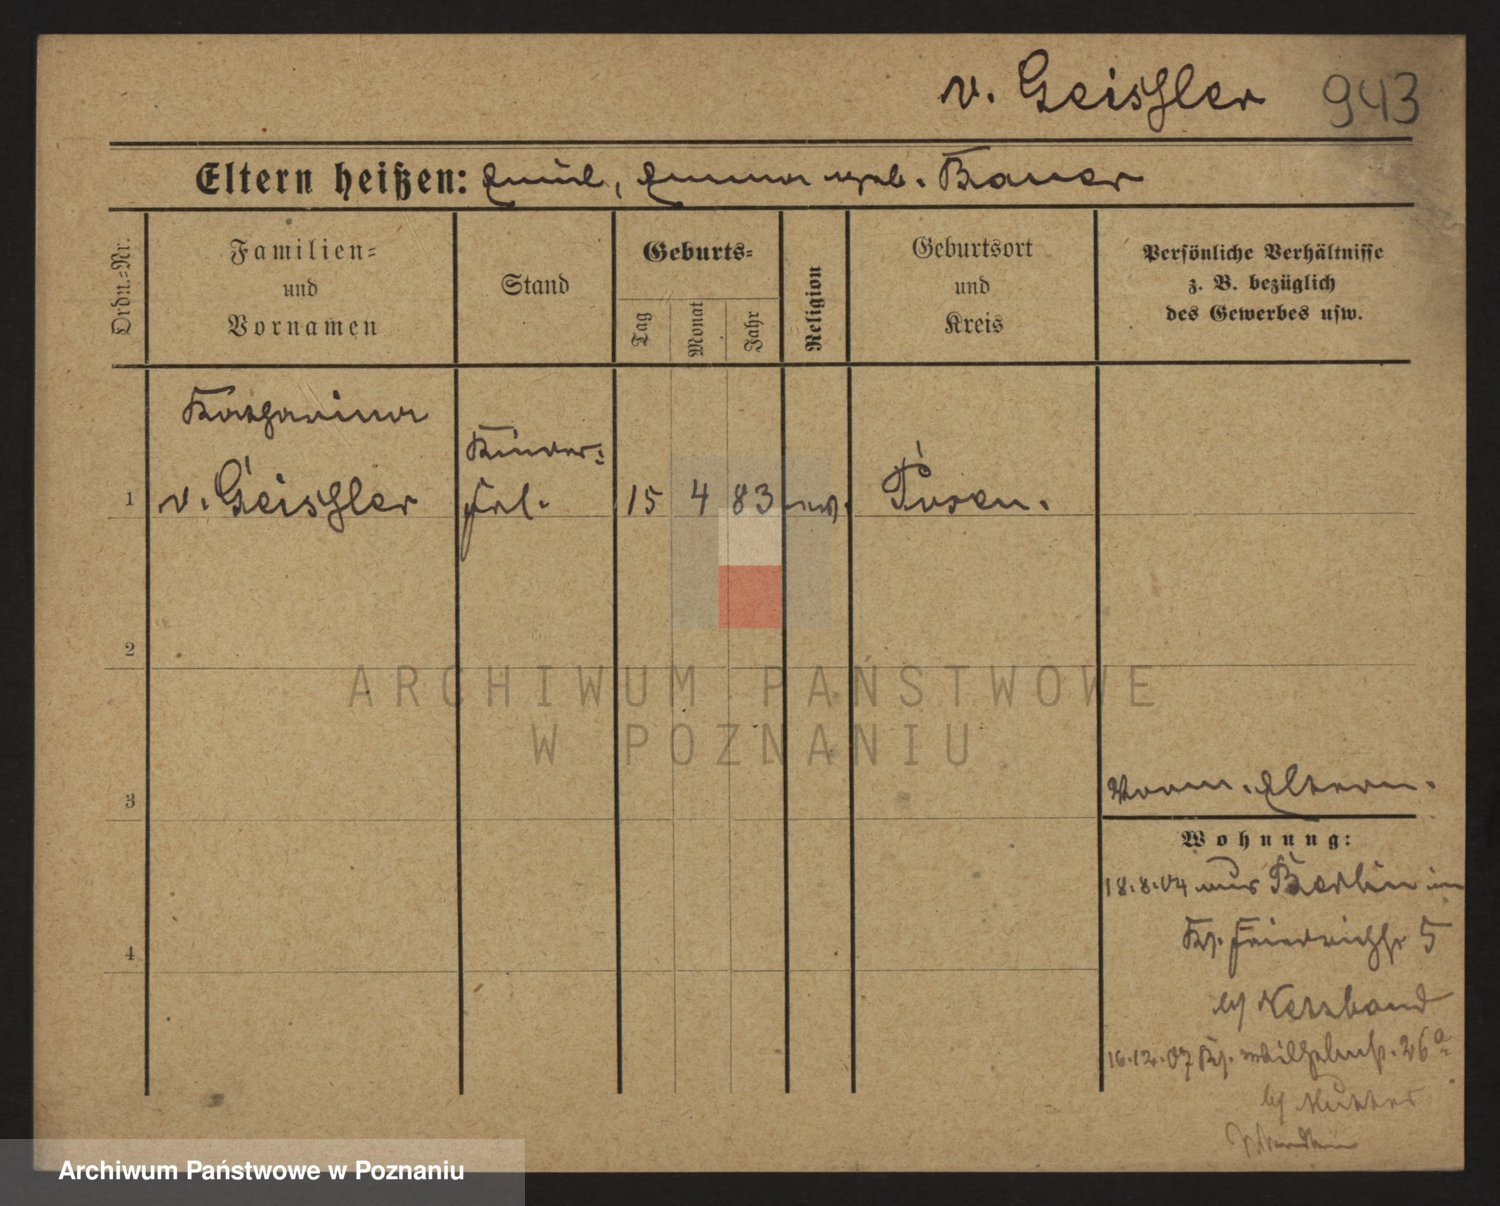 v. Geissler 943
Eltern heißen: Emil, Emma geb. Bauer
Ordn.=Nr.
Familien=
und
Vornamen
Stand
Geburts=
Tag
Monat
Jahr
Religion
Geburtsort
und
Kreis
Persönliche Verhältnisse
z. B. bezüglich
des Gewerbes usw.
Katharina
Kinder=
1 v. Geissler frl. 15 4 83 ev. Posen.
2
3
4
Vorm. Eltern.
Wohnung:
18.8.04 aus Berlin in
Kg. Friedrichstr 5
16.12.07 Kg. Wilhelmstr. 26a
bei Mutter
ARCHIWUM PAŃSTWOWE
W POZNANIU
Archiwum Państwowe w Poznaniu